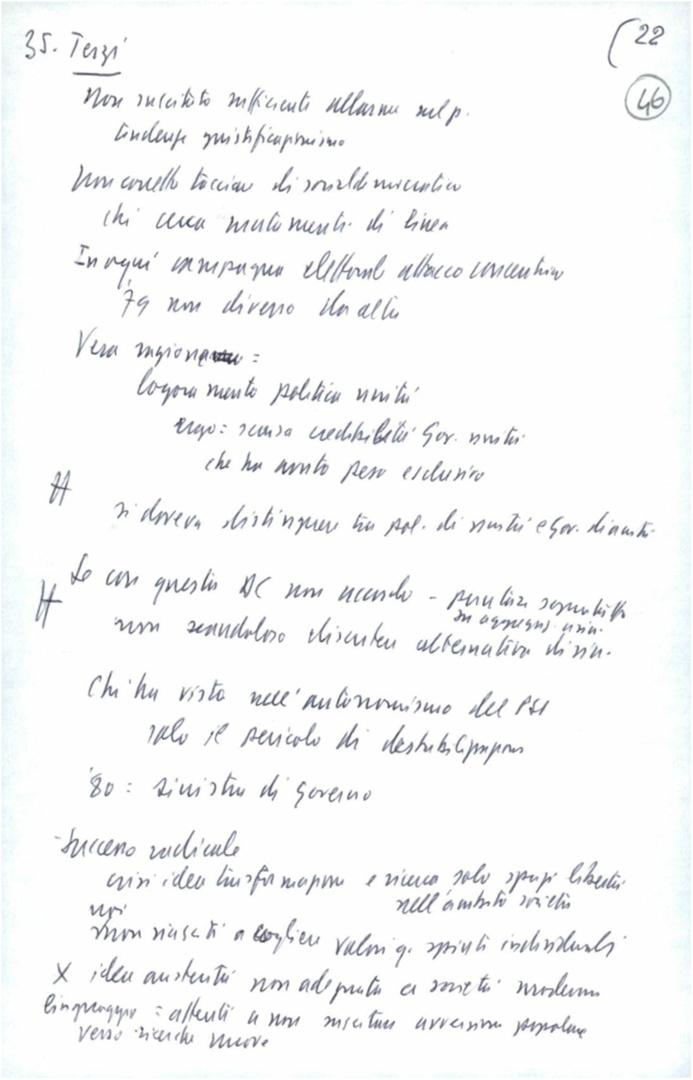 35. Terzi
(22
46
Non suscitato sufficiente allarme nel p.
tendenze giustificazionismo
Non corretto tacciare di socialdemocratico
chi cerca mutamenti di linea
In ogni campagna elettorale attacco concentrico
'79 non diverso da altre
Vera ragione =
logoramento politica unità
ergo = scarsa credibilità Gov. unità
che ha avuto peso esclusivo
si doveva distinguere tra pol. di unità e Gov. di unità
Se con questa DC non accordo -
non scandaloso discutere alternativa di sin.
Chi ha visto nell'autonomismo del PSI
solo il pericolo di destabilizzazione
'80 = sinistra di Governo
- Successo radicale
crisi idea trasformazione e ricerca solo spazi libertà
nell'ambito società
noi
non riusciti a cogliere valori q. spinti individuali
X idea austerità non adeguata a società moderna
linguaggio = attenti a non suscitare avversione popolare
verso ricerche nuove